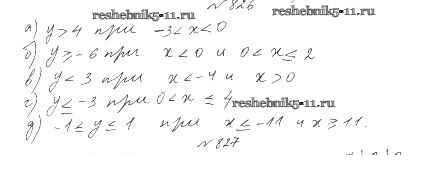 № 826
reshebnik5-11.ru reshebnik5-11.ru
а) y > 4 при -3 < x < 0
б) y ≥ -6 при x < 0 и 0 < x ≤ 2
в) y < 3 при x < -4 и x > 0
г) y ≤ -3 при 0 < x ≤ 4 reshebnik5-11.ru
д) -1 ≤ y ≤ 1 при x ≤ -11 и x ≥ 11.
№ 827